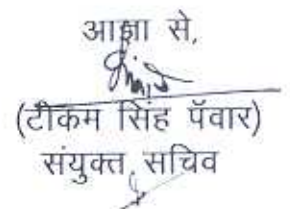 आज्ञा से,
(टीकम सिंह पॅवार)
संयुक्त सचिव